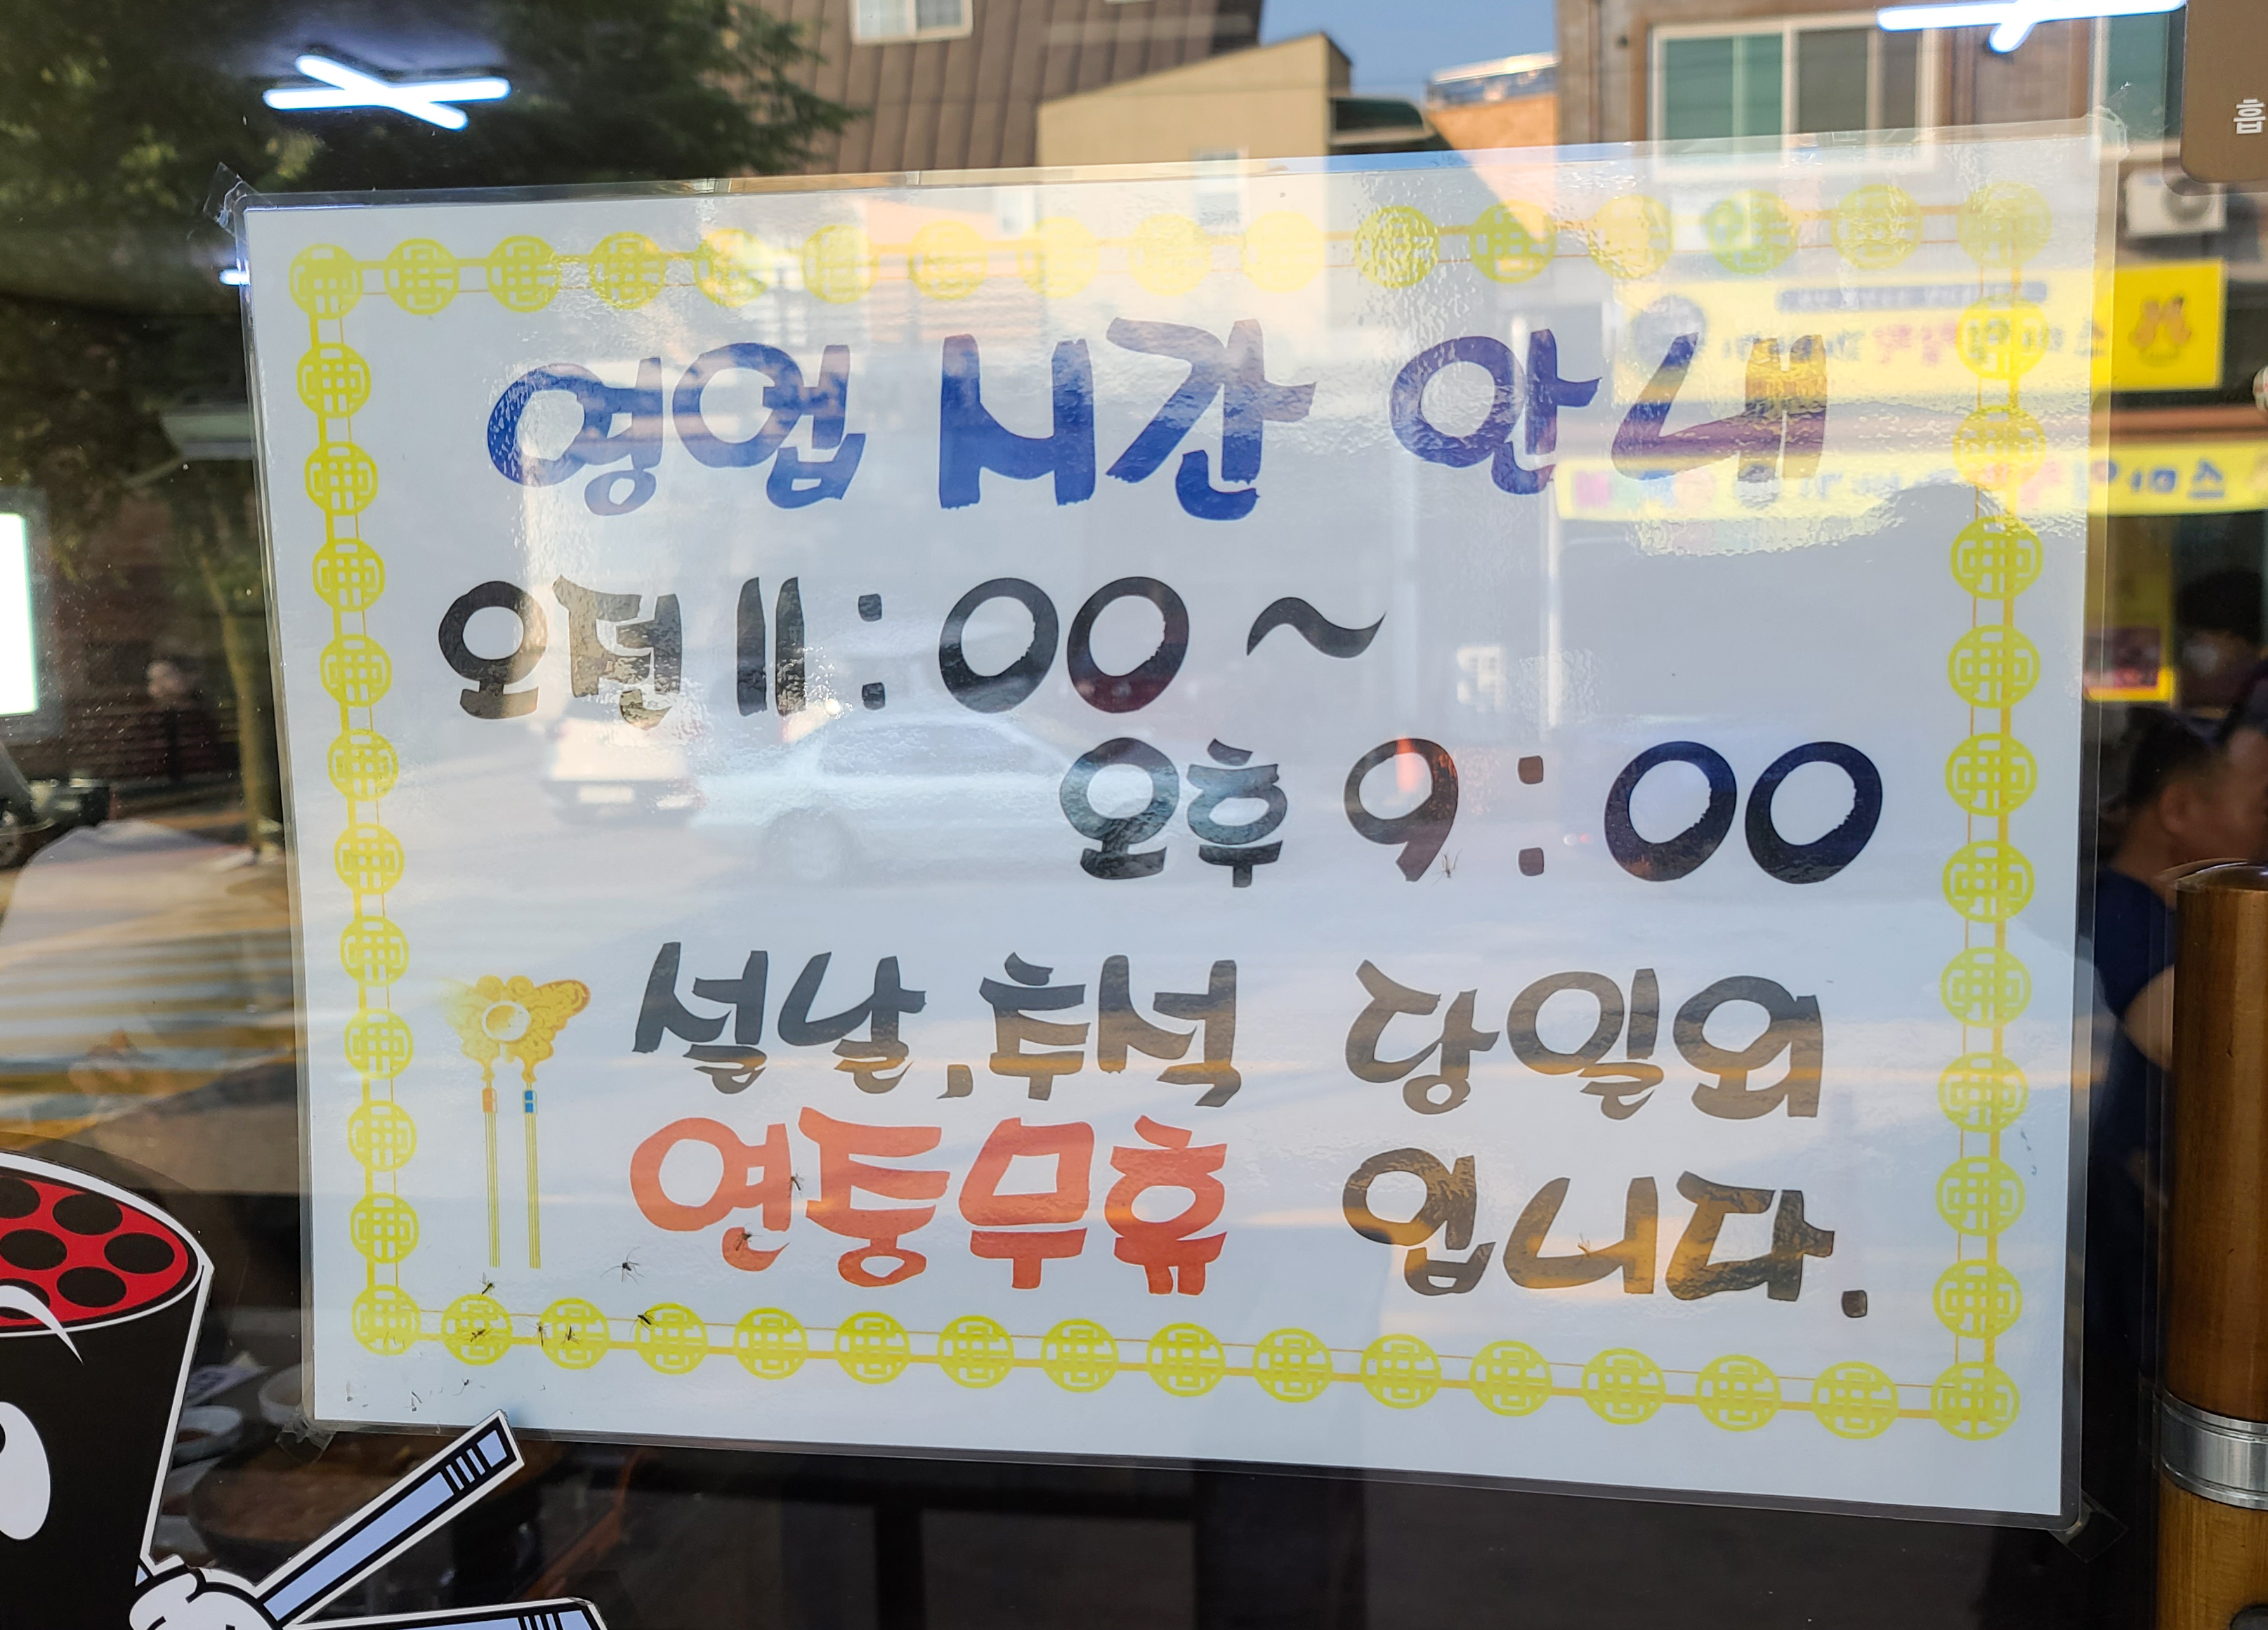 영업 시간 안내
오전 11:00~
오후 9:00
설날,추석 당일외
연중무휴 입니다.